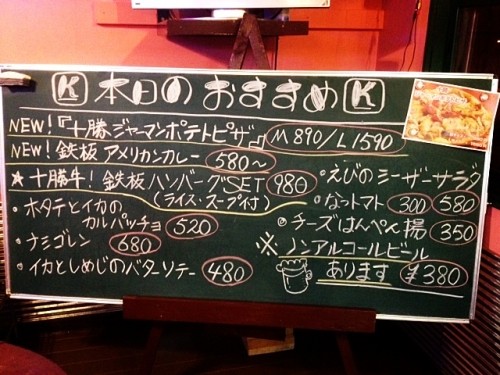 K 本日のおすすめ K
NEW!『十勝ジャーマンポテトピザ』 M890/L1590
NEW! 鉄板 アメリカンカレー 580〜
★十勝牛! 鉄板ハンバーグSET 980
(ライス・スープ付)
・ホタテとイカの
カルパッチョ 520
・ナミゴレン 680
・イカとしめじのバターソテー 480
・えびのシーザーサラダ 580
・なっトマト 300
・チーズはんぺん揚 350
※ノンアルコールビール
あります ¥380